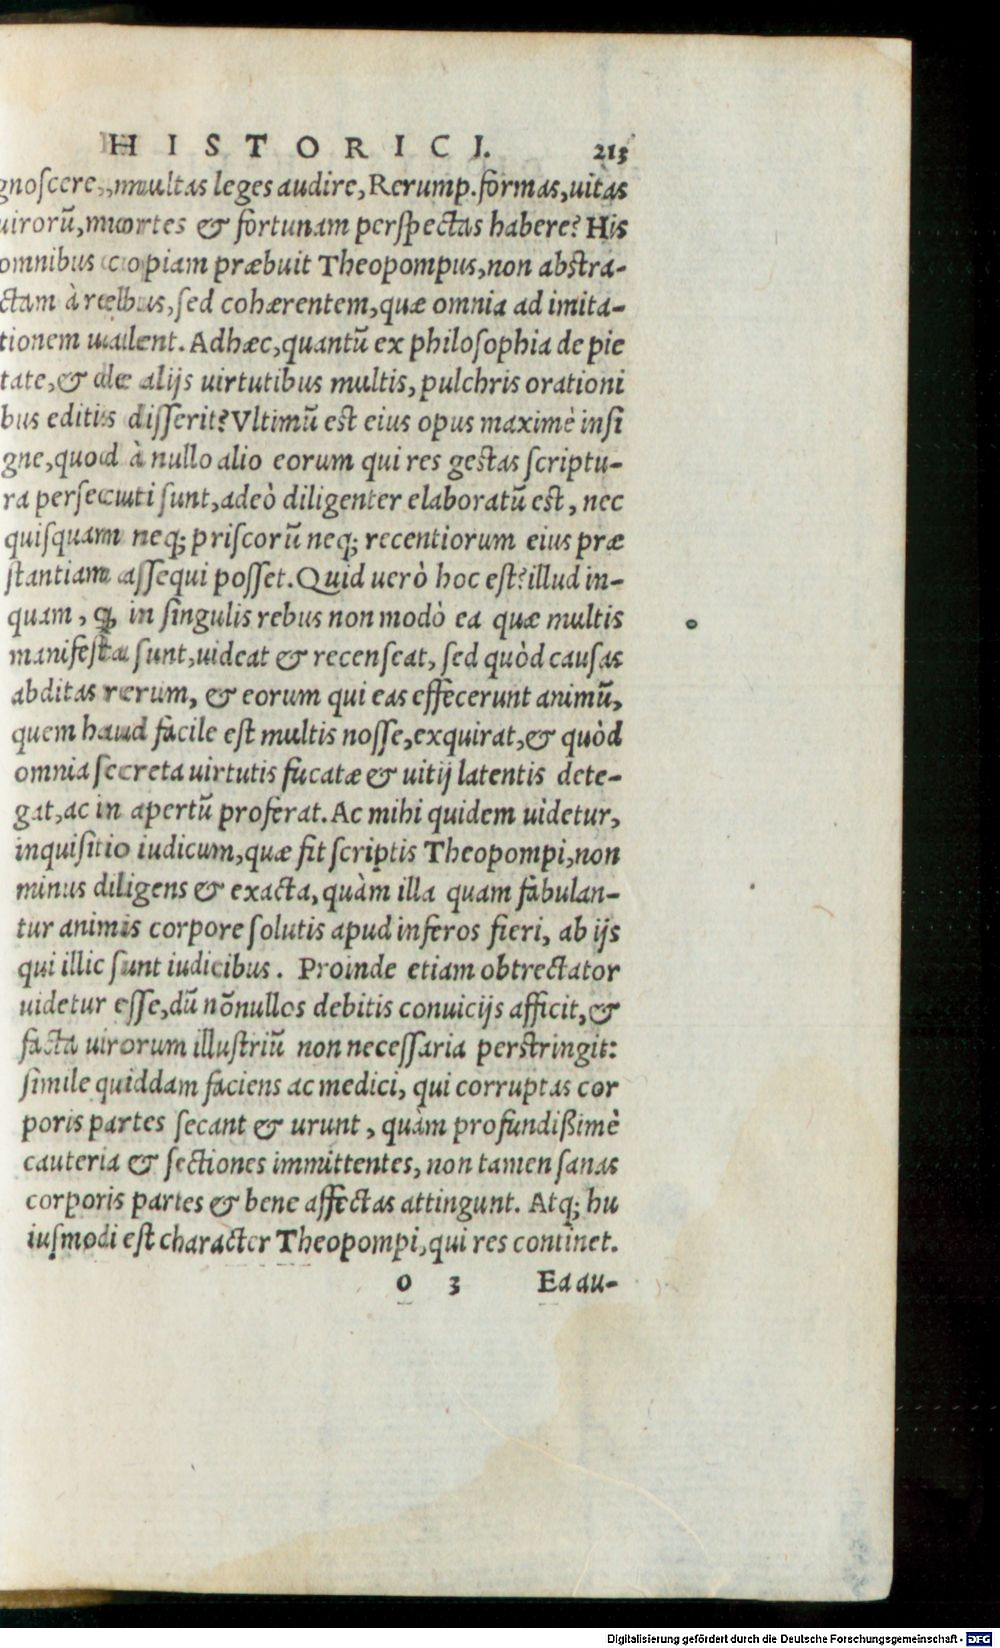 HISTORICI. 213
gnoſcere, multas leges audire, Rerump. formas, uitas
uirorū, mortes & fortunam perſpectas habere? His
omnibus copiam præbuit Theopompus, non abſtra-
ctam à rebus, ſed cohærentem, quæ omnia ad imita-
tionem ualent. Adhæc, quantū ex philoſophia de pie
tate, & de alijs uirtutibus multis, pulchris orationi
bus editis diſſerit? Vltimū eſt eius opus maximè inſi
gne, quod à nullo alio eorum qui res geſtas ſcriptu-
ra perſecuti ſunt, adeò diligenter elaboratū eſt, nec
quiſquam neq; priſcorū neq; recentiorum eius præ
ſtantiam aſſequi poſſet. Quid uerò hoc eſt? illud in-
quam, ꝙ in ſingulis rebus non modò ea quæ multis
manifeſta ſunt, uideat & recenſeat, ſed quòd cauſas
abditas rerum, & eorum qui eas effecerunt animū,
quem haud facile eſt multis noſſe, exquirat, & quòd
omnia ſecreta uirtutis fucatæ & uitij latentis dete-
gat, ac in apertū proferat. Ac mihi quidem uidetur,
inquiſitio iudicum, quæ fit ſcriptis Theopompi, non
minus diligens & exacta, quàm illa quam fabulan-
tur animis corpore ſolutis apud inferos fieri, ab ijs
qui illic ſunt iudicibus. Proinde etiam obtrectator
uidetur eſſe, dū nōnullos debitis conuicijs afficit, &
facta uirorum illuſtriū non neceſſaria perſtringit:
ſimile quiddam faciens ac medici, qui corruptas cor
poris partes ſecant & urunt, quàm profundißimè
cauteria & ſectiones immittentes, non tamen ſanas
corporis partes & bene affectas attingunt. Atq; hu
iuſmodi eſt character Theopompi, qui res continet.
o 3 Ea au-
Digitalisierung gefördert durch die Deutsche Forschungsgemeinschaft - DFG